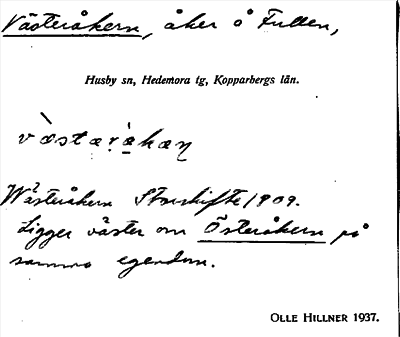 Västeråkern, åker å Fullen,
Husby sn, Hedemora tg, Kopparbergs län.
vàstaṛàkaṇ
Wästeråkern Storskifte 1809.
Ligger väster om Österåkern på
samma egendom.
OLLE HILLNER 1937.